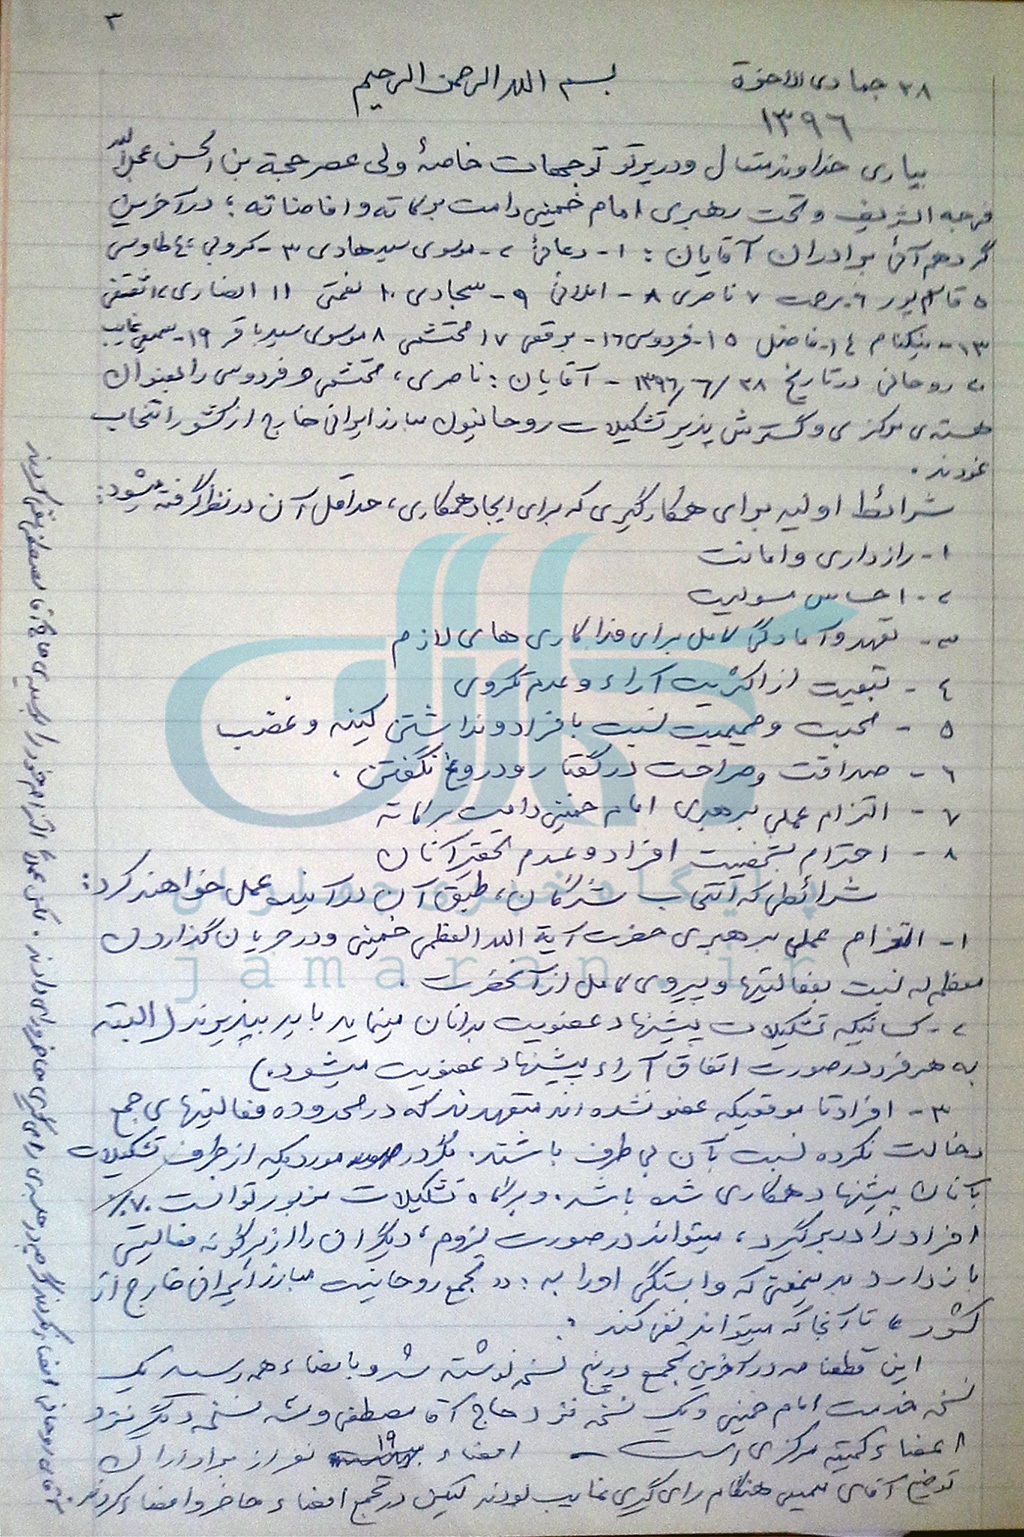 ۳
۲۸ جمادی الاخرة
بسم الله الرحمن الرحیم
۱۳۹۶
بیاری خداوند متعال و در پرتو توجهات خاصهٔ ولی عصر حجة بن الحسن عجل الله
فرجه الشریف و تحت رهبری امام خمینی دامت برکاته و افاضاته؛ در آخرین
گردهم آئی برادران آقایان: ۱- دعائی ۲- موسوی سید هادی ۳- کروبی ٤ طاوسی
۵ قاسم پور ۶ ناصری ۸- املائی ۹- سجادی ۱۰ نعمتی ۱۱ انصاری
۱۳- نیکنام ١٤- فاضل ۱۵- فردوسی ۱۶- برقعی ۱۷ محتشمی ۸ موسوی سید باقر ۱۹- سمیعی غایب
۲۰ روحانی در تاریخ ۲۸/۶/۱۳۹۶ - آقایان: ناصری، محتشمی و فردوسی را بعنوان
هسته‌ی مرکزی و گسترش پذیر تشکیلات روحانیون مبارز ایرانی خارج از کشور انتخاب
نمودند.
شرائط اولیه برای همکارگیری که برای ایجاد همکاری، حداقل آن در نظر گرفته میشود:
۱- رازداری و امانت
۲- احساس مسولیت
۳- تعهد و آمادگی کامل برای فداکاری های لازم
٤- تبعیت از اکثریت آراء و عدم تکروی
۵- محبت و صمیمیت نسبت بافراد و نداشتن کینه و غضب
۶- صداقت و صراحت در گفتار و دروغ نگفتن.
۷- التزام عملی برهبری امام خمینی دامت برکاته
۸- احترام بشخصیت افراد و عدم تحقیر آنان
شرائطی که انتخاب شدگان، طبق آن در آینده عمل خواهند کرد:
۱- التزام عملی برهبری حضرت آیة الله العظمی خمینی و در جریان گذاردن
معظم له نسبت بفعالیتها و پیروی کامل از آنحضرت.
۲- کسانیکه تشکیلات پیشنهاد عضویت بدانان مینماید باید بپذیرند (البته
به هر فرد در صورت اتفاق آراء پیشنهاد عضویت میشود.)
۳- افراد تا موقعیکه عضو نشده اند متعهدند که در محدوده فعالیتهای جمع
دخالت نکرده نسبت بآن بی طرف باشند. مگر در موردیکه از طرف تشکیلات
بآنان پیشنهاد همکاری شده باشد. و هرگاه تشکیلات مزبور توانست ۷۰٪
افراد را در بر گیرد، میتواند در صورت لزوم، دیگران را از هرگونه فعالیتی
باز دارد بدینمعنی که وابستگی او را به: «تجمع روحانیت مبارز ایرانی خارج از
کشور» تا آنجا که میتواند نفی کند.
این قطعنامه در آخرین تجمع در پنج نسخه نوشته شد و بامضاء همه رسید یک
نسخه خدمت امام خمینی و یک نسخه نزد حاج آقا مصطفی و سه نسخه دیگر نزد
اعضاء کمیته مرکزی است- امضاء ۱۹ نفر از برادران
توضیح آقای سمیعی هنگام رای گیری غایب بودند لیکن در تجمع امضاء حاضر و امضاء کردند.
جماران
پایگاه خبری جماران
jamaran.ir